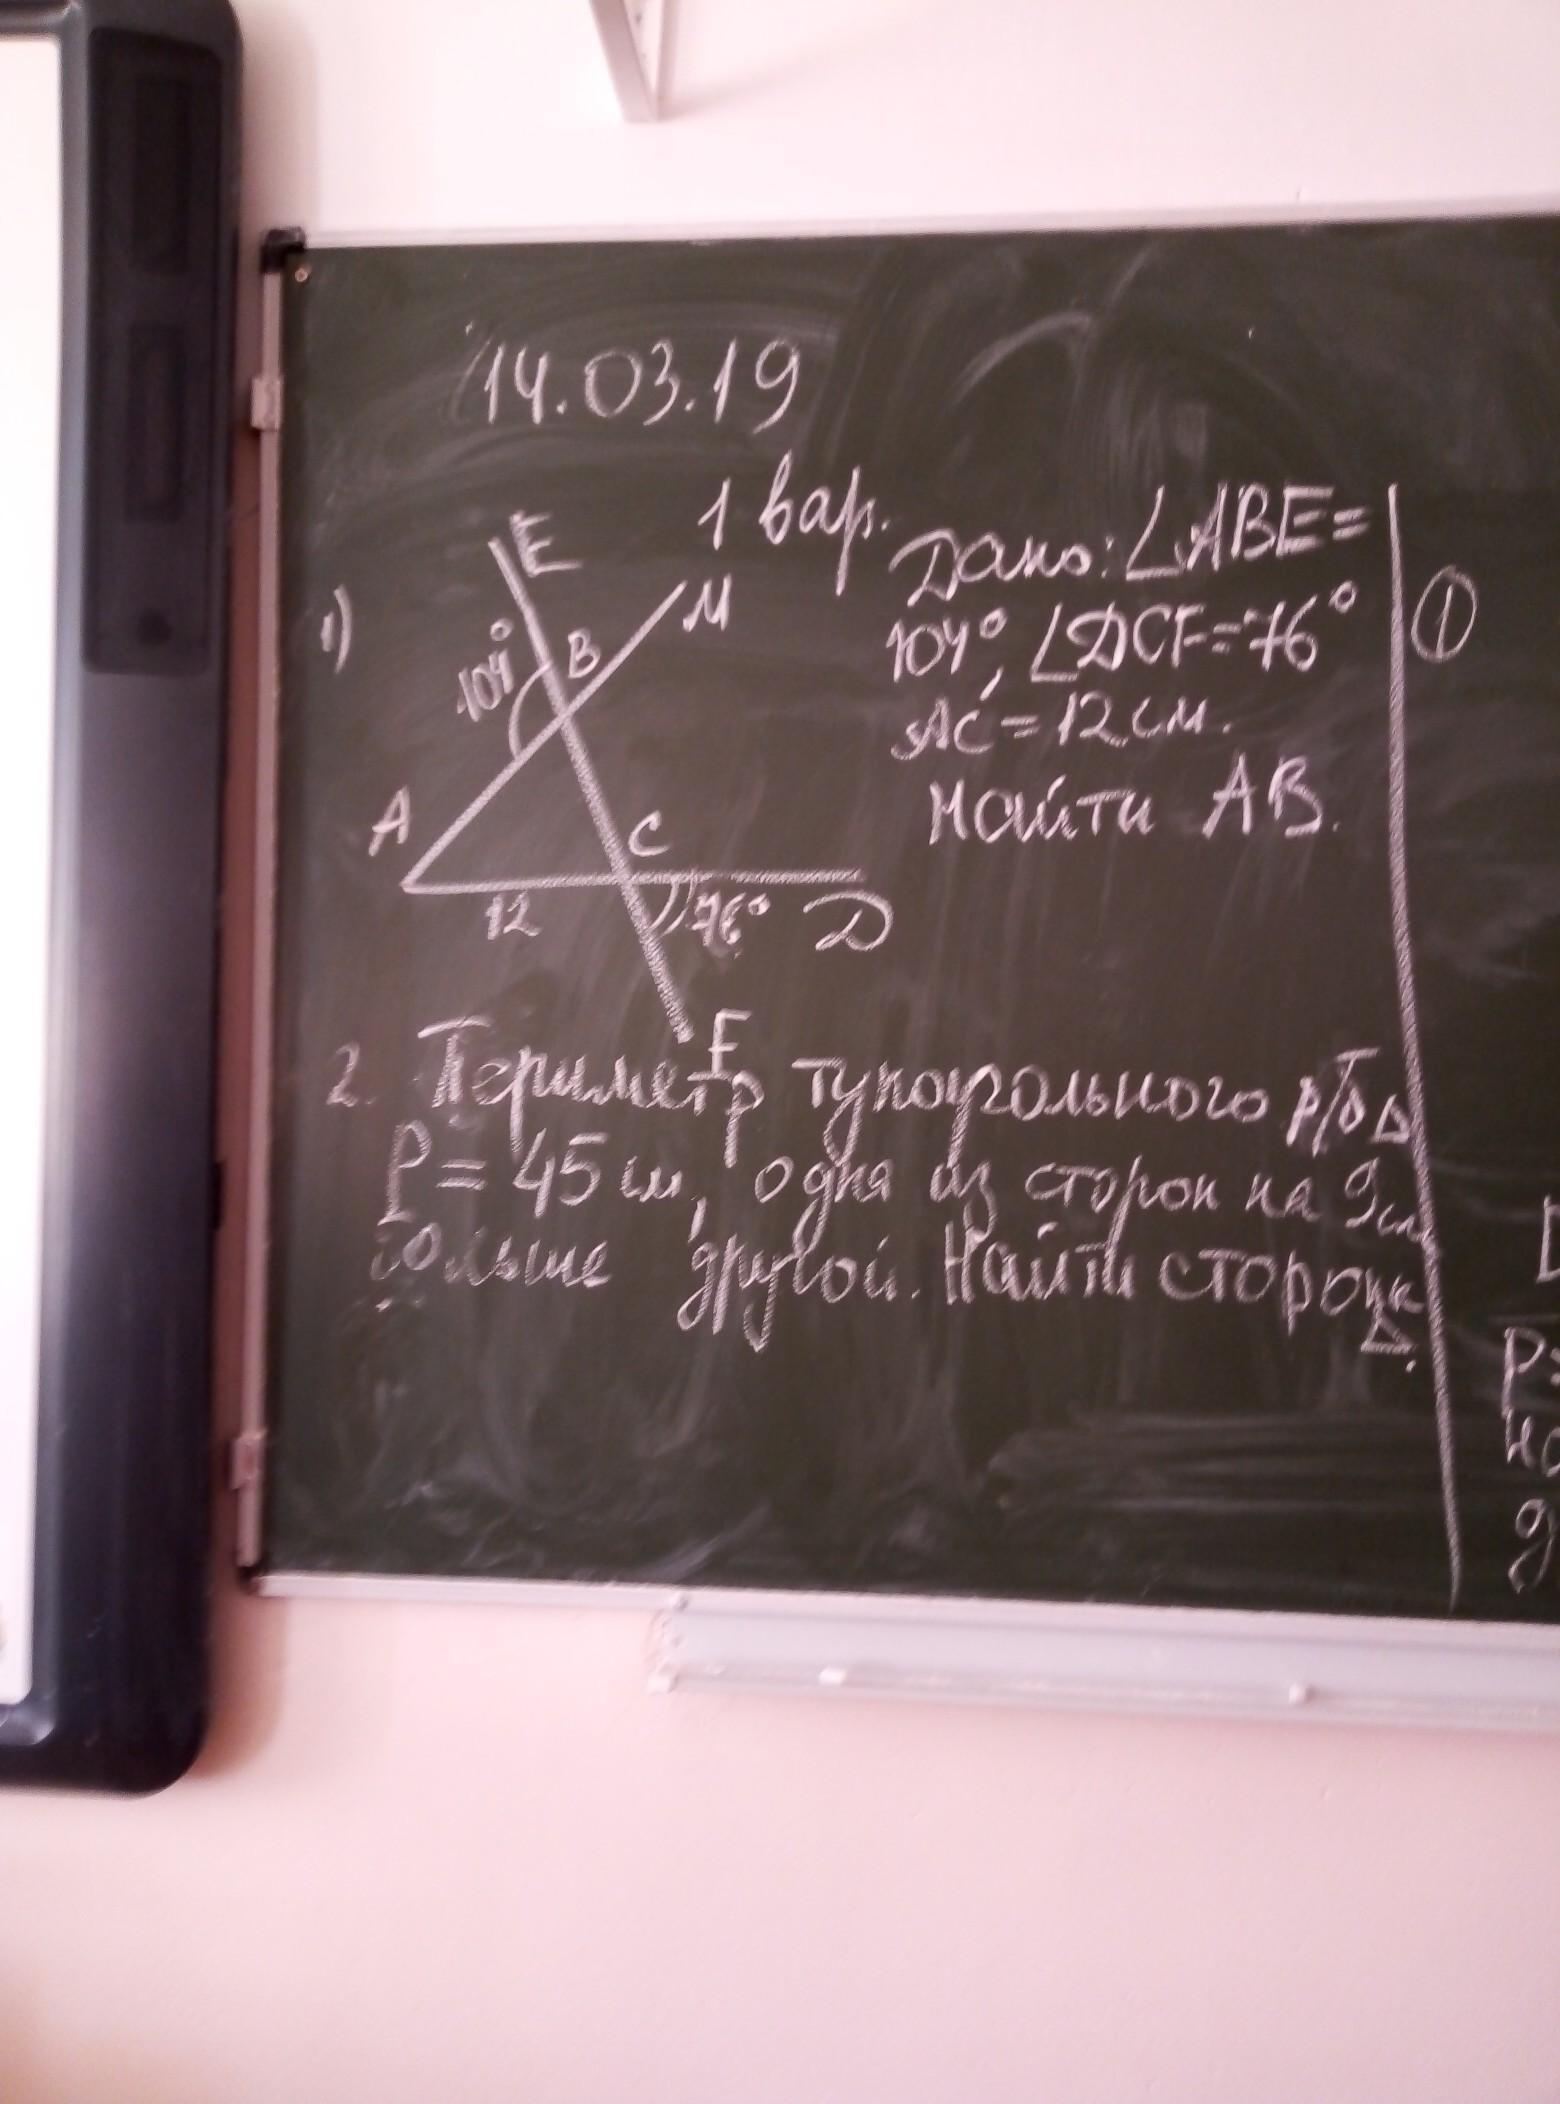 14.03.19
1 вар.
1)
E
M
B
104°
A
C
12
76°
D
F
Дано: ∠ABE=
104°, ∠DCF=76°
AC = 12 см.
Найти AB.
2. Периметр тупоугольного р/б Δ
P = 45 см, одна из сторон на 9 см
больше другой. Найти стороны
Δ.
①
P=